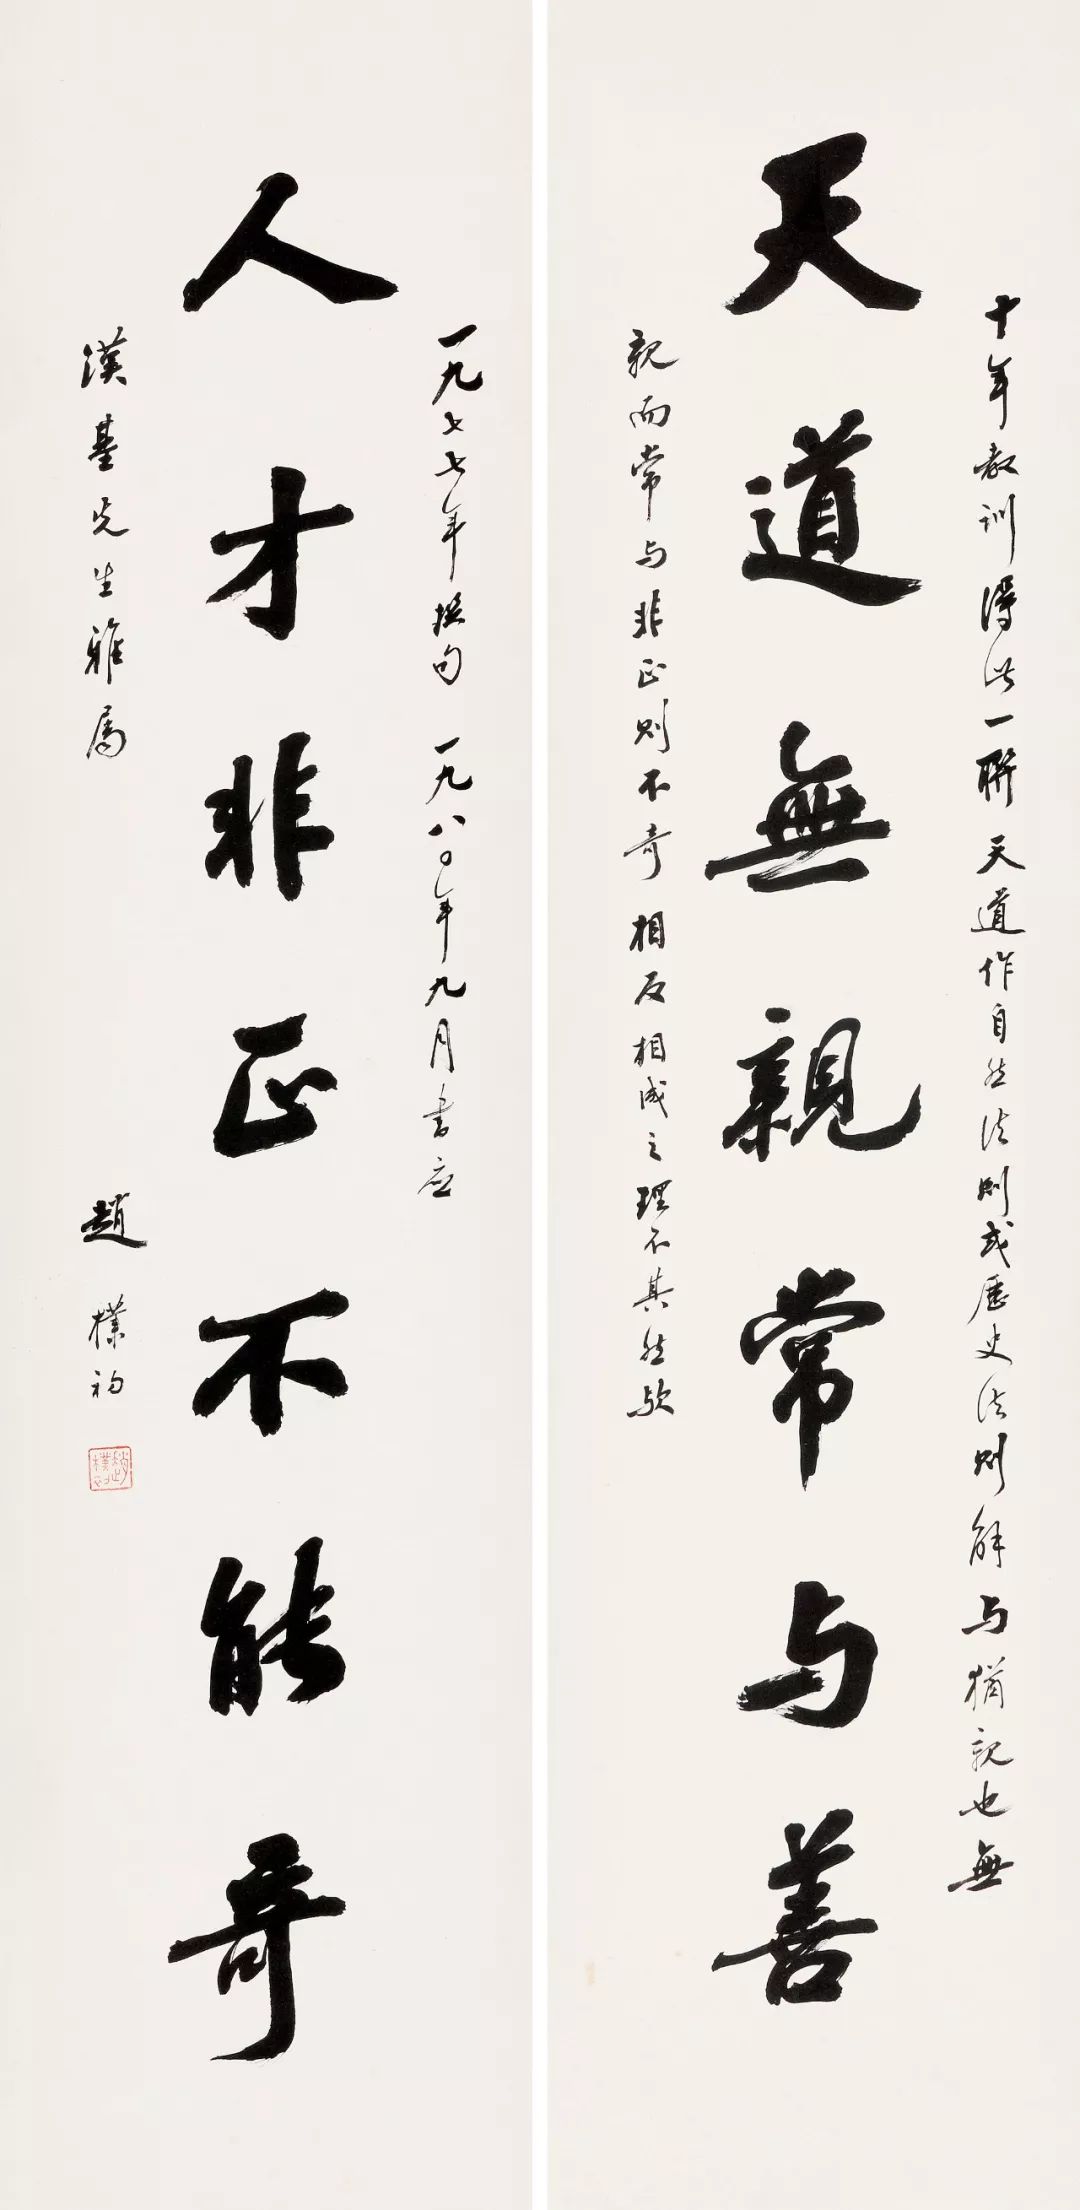 十年教训得此一联天道作自然法则或历史法则解与犹親也無
天道無親常与善
親而常与非正则不奇相反相成之理不其然欤
一九七七年撰句一九八〇年九月书应
人才非正不能奇
漢基先生雅属
趙樸初
趙樸初